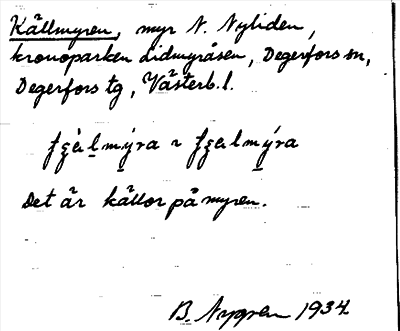 Källmyren, myr N. Nyliden,
kronoparken Lidmyråsen, Degerfors sn,
Degerfors tg, Västerb. l.
Det är källor på myren.
B. Nygren 1934